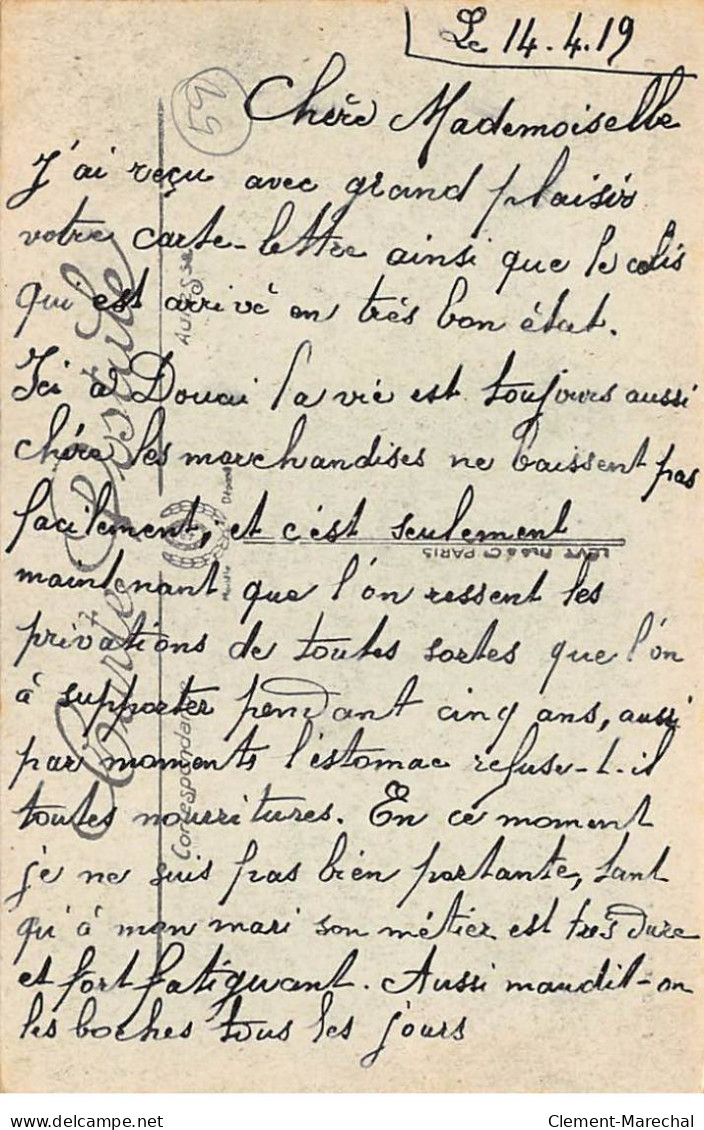 Le 14.4.19
59
Chère Mademoiselle
J'ai reçu avec grand plaisir
votre carte-lettre ainsi que le colis
qui est arrivé en très bon état.
Ici à Douai la vie est toujours aussi
chère les marchandises ne baissent pas
facilement, et c'est seulement
maintenant que l'on ressent les
privations de toutes sortes que l'on
à supporter pendant cinq ans, aussi
par moments l'estomac refuse-t-il
toutes nourritures. En ce moment
je ne suis pas bien portante, tant
qu'à mon mari son métier est très dure
et fort fatiguant. Aussi maudit-on
les boches tous les jours
Carte Postale
Correspondance
LEVY FILS & Cie PARIS
Clement-Marechal